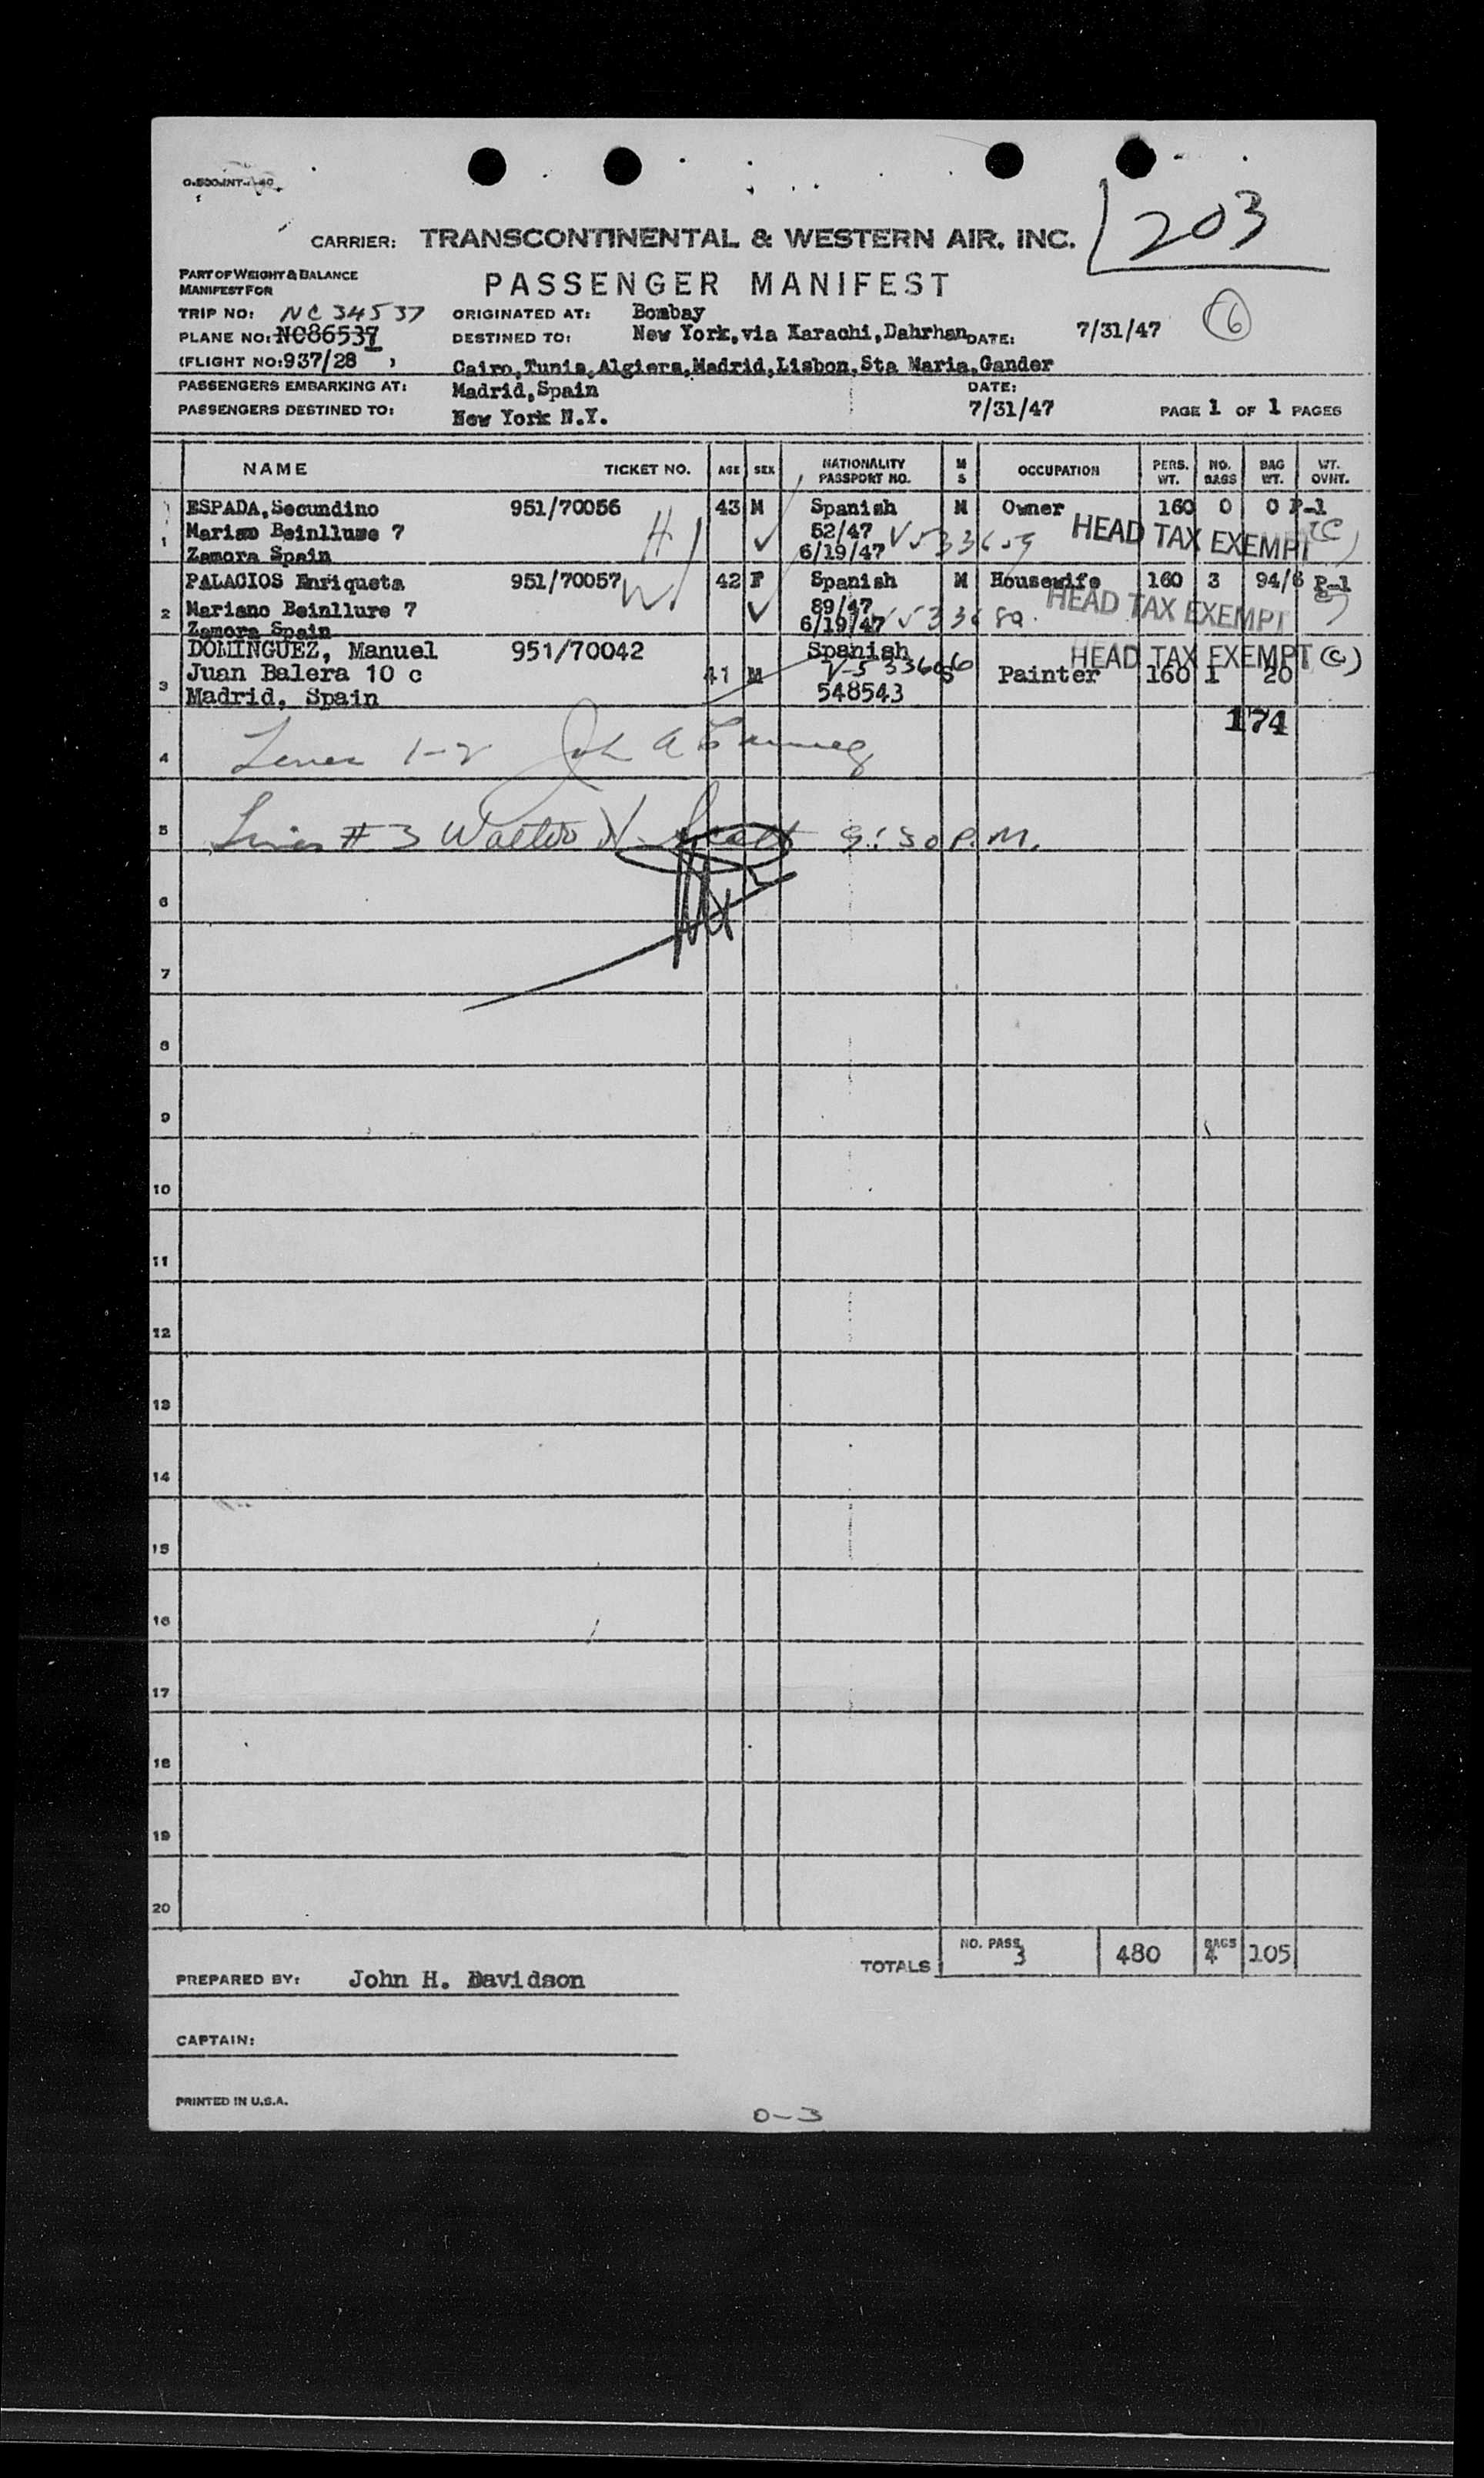 203
CARRIER: TRANSCONTINENTAL & WESTERN AIR. INC.
PART OF WEIGHT & BALANCE
MANIFEST FOR
PASSENGER MANIFEST
6
TRIP NO: NC 34537 ORIGINATED AT: Bombay
PLANE NO: NC86537 DESTINED TO: New York, via Karachi, Dahrhan DATE: 7/31/47
(FLIGHT NO: 937/28 ) Cairo, Tunis, Algiers, Madrid, Lisbon, Sta Maria, Gander
PASSENGERS EMBARKING AT: Madrid, Spain DATE:
PASSENGERS DESTINED TO: New York N.Y. 7/31/47 PAGE 1 OF 1 PAGES
NAME TICKET NO. AGE SEX NATIONALITY PASSPORT NO. M S OCCUPATION PERS. WT. NO. BAGS BAG WT. WT. OVNT.
ESPADA, Secundino 951/70056 43 M Spanish M Owner 160 0 0 P-1
1 Beinllume 7 H 52/47 HEAD TAX EXEMPT (C)
Zamora Spain 6/19/47
PALACIOS Enriqueta 951/70057 W 42 F Spanish M Housewife 160 3 94/6 P-1
2 Mariano Beinllure 7 89/47 HEAD TAX EXEMPT
Zamora Spain 6/19/47
DOMINGUEZ, Manuel 951/70042 Spanish HEAD TAX EXEMPT (C)
Juan Balera 10 c 41 M V-533666 S Painter 160 1 20
3 Madrid, Spain 548543
174
4 Lines 1-2 John A
5 Lines # 3 Walter Scott 9:30 P.M.
6
7
8
9
10
11
12
13
14
15
16
17
18
19
20
TOTALS NO. PASS. 3 480 BAGS 4 105
PREPARED BY: John H. Davidson
CAPTAIN:
PRINTED IN U.S.A.
0-3